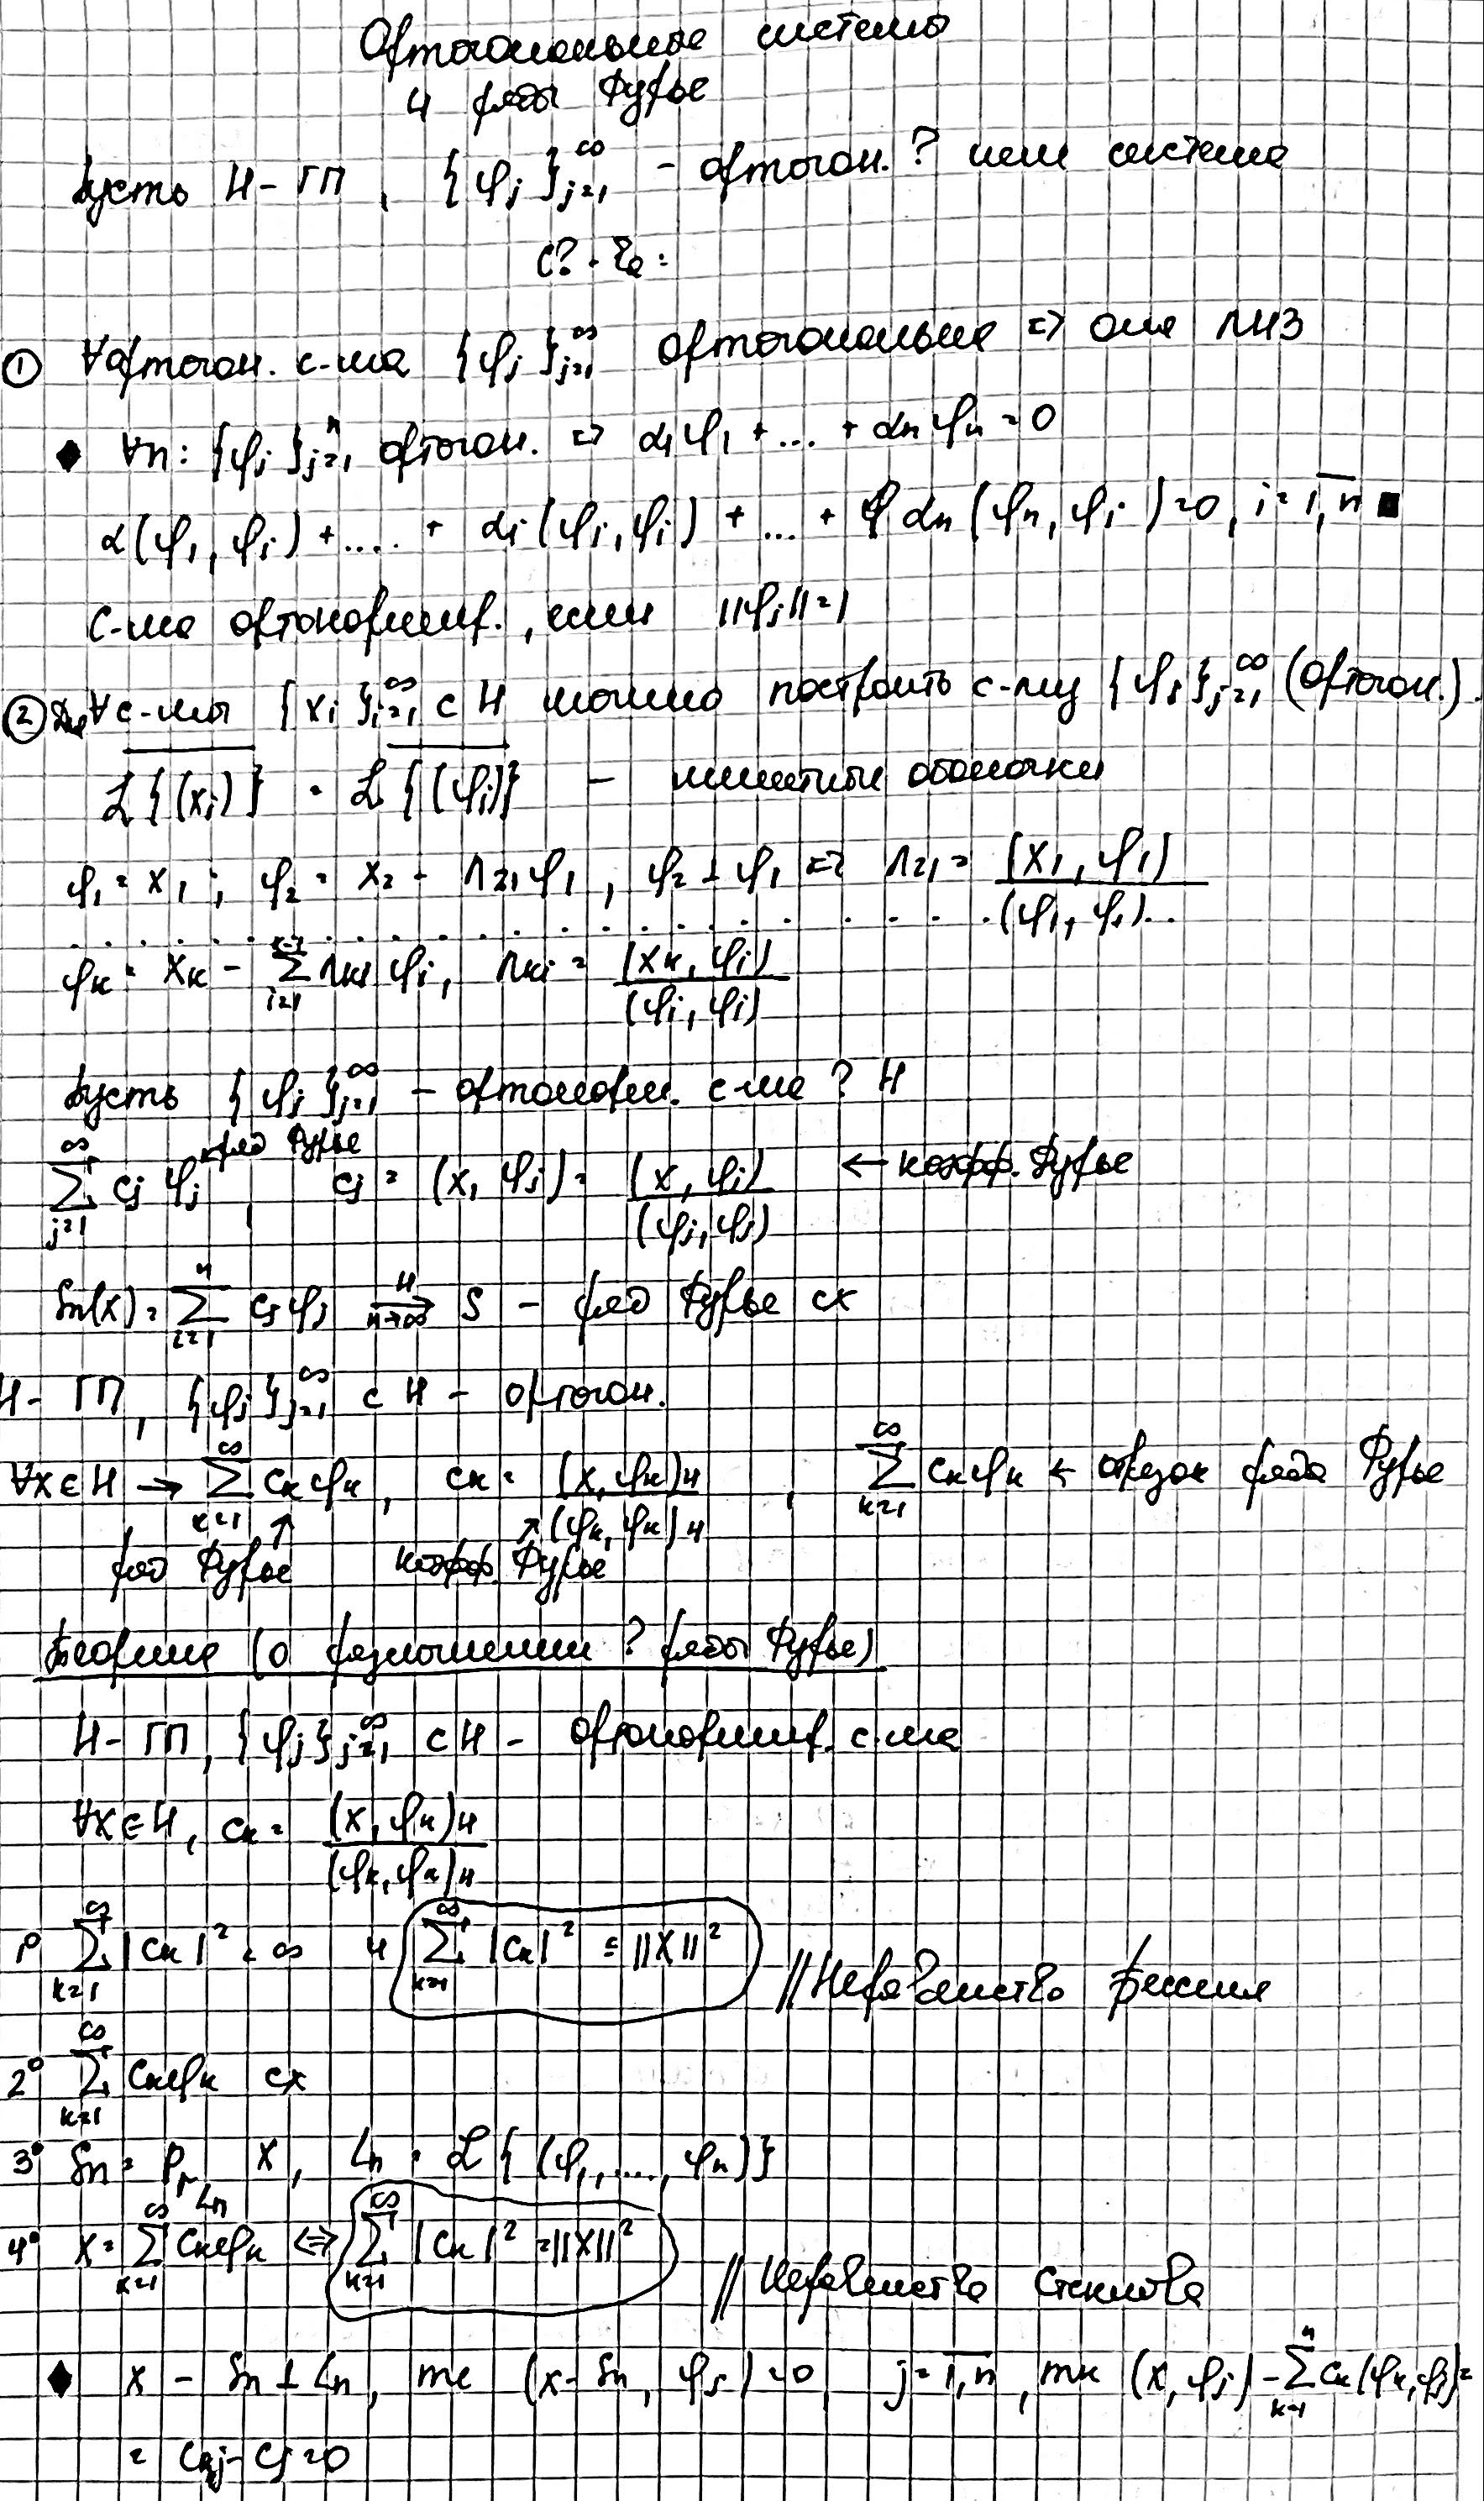 Ортогональные системы
и ряды Фурье
Пусть H - ГП, {φj}_{j=1}^∞ - ортогон. ? или система
С? - ва:
① ∀ ортогон. с-ма {φj}_{j=1}^∞ ортогональна => она ЛНЗ
♦ ∀n: {φj}_{j=1}^n ортогон. => α1φ1 + ... + αnφn = 0
α(φ1, φi) + .... + αi(φi, φi) + ... + αn(φn, φi) = 0, i = 1,n ■
С-ма ортонормир., если ||φj|| = 1
② Для ∀ с-мы {xi}_{i=1}^∞ ⊂ H можно построить с-му {φj}_{j=1}^∞ (ортогон.).
L{(xi)} = L{(φi)} - линейные оболочки
φ1 = x1; φ2 = x2 - λ21φ1, φ2 ⊥ φ1 => λ21 = (x1, φ1)/(φ1, φ1)
. . . . . . . . . . . . . . . . . .
φk = xk - Σ_{i=1}^{k-1} λki φi, λki = (xk, φi)/(φi, φi)
Пусть {φj}_{j=1}^∞ - ортонорм. с-ма ? H
Σ_{j=1}^∞ cj φj ← ряд Фурье, cj = (x, φj) = (x, φj)/(φj, φj) ← коэфф. Фурье
Sn(x) = Σ_{i=1}^n cj φj →^H_{n→∞} S - ряд Фурье сх
H - ГП, {φj}_{j=1}^∞ ⊂ H - ортогон.
∀x ∈ H → Σ_{k=1}^∞ ck φk, ck = (x, φk)H/(φk, φk)H, Σ_{k=1}^∞ ck φk ← отрезок ряда Фурье
↑ ряд Фурье ↗ коэфф. Фурье
Теорема (о разложении ? ряды Фурье)
H - ГП, {φj}_{j=1}^∞ ⊂ H - ортонормир. с-ма
∀x ∈ H, ck = (x, φk)H/(φk, φk)H
1° Σ_{k=1}^∞ |ck|² < ∞ и Σ_{k=1}^∞ |ck|² ≤ ||x||² // Неравенство Бесселя
2° Σ_{k=1}^∞ ck φk сх
3° Sn = Pr_{Ln} x, Ln = L{(φ1, ..., φn)}
4° x = Σ_{k=1}^∞ ck φk <=> Σ_{k=1}^∞ |ck|² = ||x||² // Неравенство Стеклова
♦ x - Sn ⊥ Ln, те (x - Sn, φj) = 0, j = 1,n, тк (x, φj) - Σ_{k=1}^n ck(φk, φj) =
= cj - cj = 0